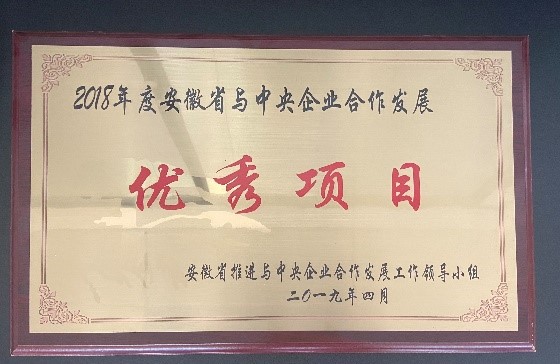 2018年度安徽省与中央企业合作发展
优秀项目
安徽省推进与中央企业合作发展工作领导小组
二〇一九年四月